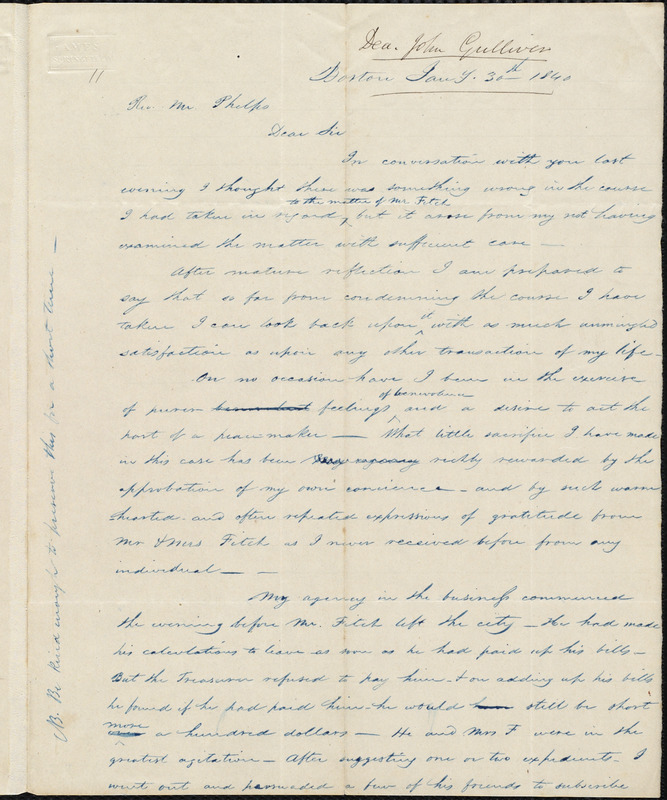 Dea. John Gulliver
11
Boston Jany. 30th 1840
Rev Mr Phelps
Dear Sir
In conversation with you last
evening I thought there was something wrong in the course
to the matter of Mr Fitch
I had taken in regard, but it arose from my not having
examined the matter with sufficient care —
After mature reflection I am prepared to
say that so far from condemning the course I have
taken I can look back upon it with as much unmingled
satisfaction as upon any other transaction of my life —
On no occasion have I been in the exercise
of benevolence
of purer benevolent feelings and a desire to act the
part of a peace maker — What little sacrifice I have made
in this case has been richly rewarded by the
approbation of my own concience — and by such warm
hearted and often repeated expressions of gratitude from
Mr & Mrs Fitch as I never received before from any
individual — —
My agency in the business commenced
the evening before Mr. Fitch left the city — He had made
his calculations to leave as soon as he had paid up his bills —
But the Treasurer refused to pay him — & on adding up his bills
he found if he had paid him he would still be short
more
a hundred dollars — He and Mrs F were in the
greatest agitation — After suggesting one or two expedients — I
went out and persuaded a few of his friends to subscribe
NB. Be kind enough to preserve this for a short time —